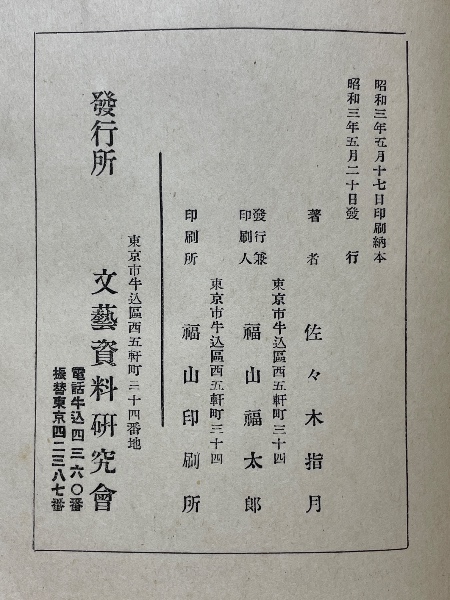 昭和三年五月十七日印刷納本
昭和三年五月二十日發行
著者 佐々木指月
東京市牛込區西五軒町三十四
發行兼印刷人 福山福太郎
東京市牛込區西五軒町三十四
印刷所 福山印刷所
東京市牛込區西五軒町三十四番地
發行所 文藝資料研究會
電話牛込四三六〇番
振替東京四二三八七番